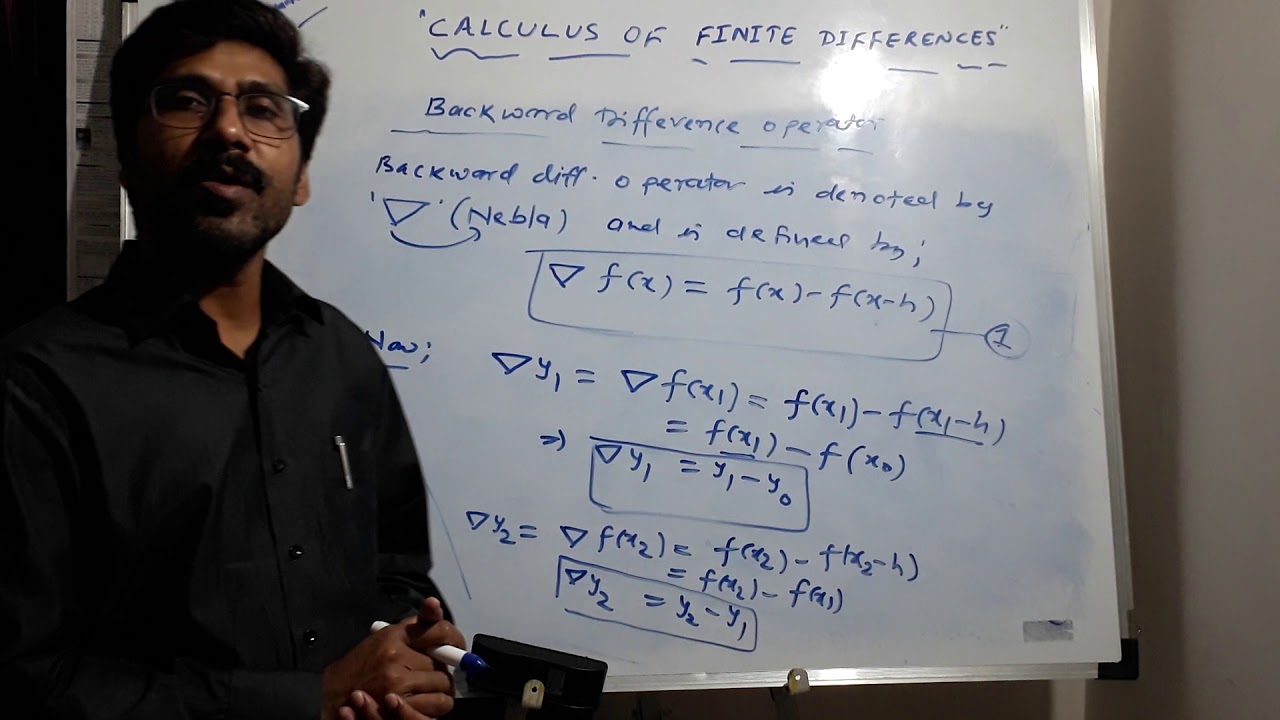 "CALCULUS OF FINITE DIFFERENCES"
Backward Difference operator
Backward diff. operator is denoted by
'▽' (Nebla) and is defined by;
▽ f(x) = f(x) - f(x-h) — 1
Now; ▽y₁ = ▽ f(x₁) = f(x₁) - f(x₁-h)
= f(x₁) - f(x₀)
⇒ ▽y₁ = y₁ - y₀
▽y₂ = ▽ f(x₂) = f(x₂) - f(x₂-h)
= f(x₂) - f(x₁)
▽y₂ = y₂ - y₁